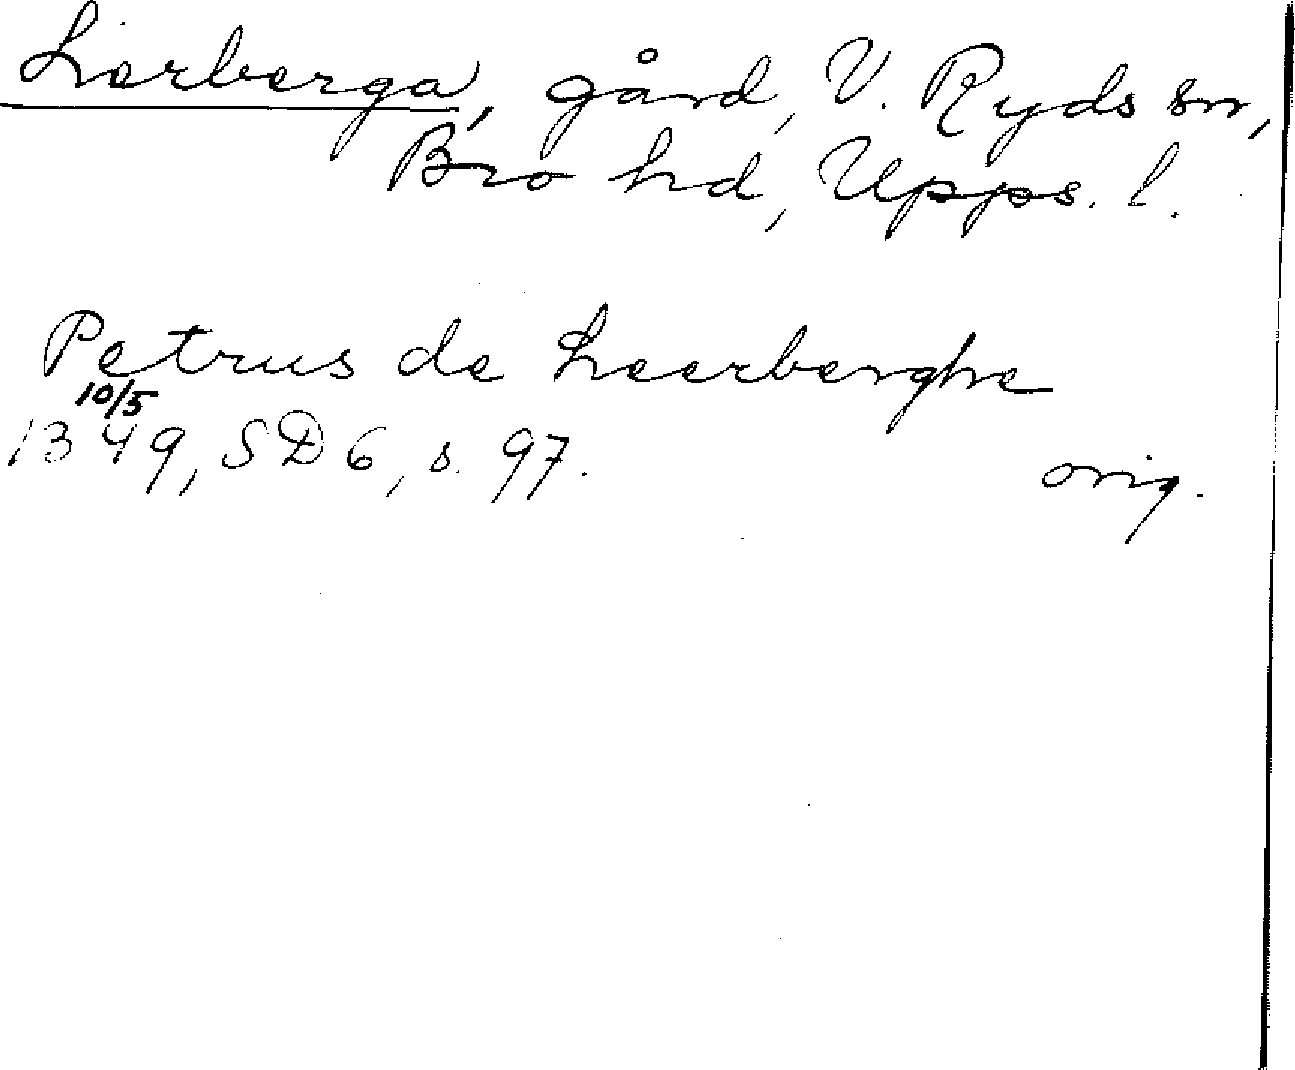 Lerberga, gård, V. Ryds sn,
Bro hd, Upps. l.
Petrus de Leerberghe
10/5
1349, SD 6, s. 97.
orig.